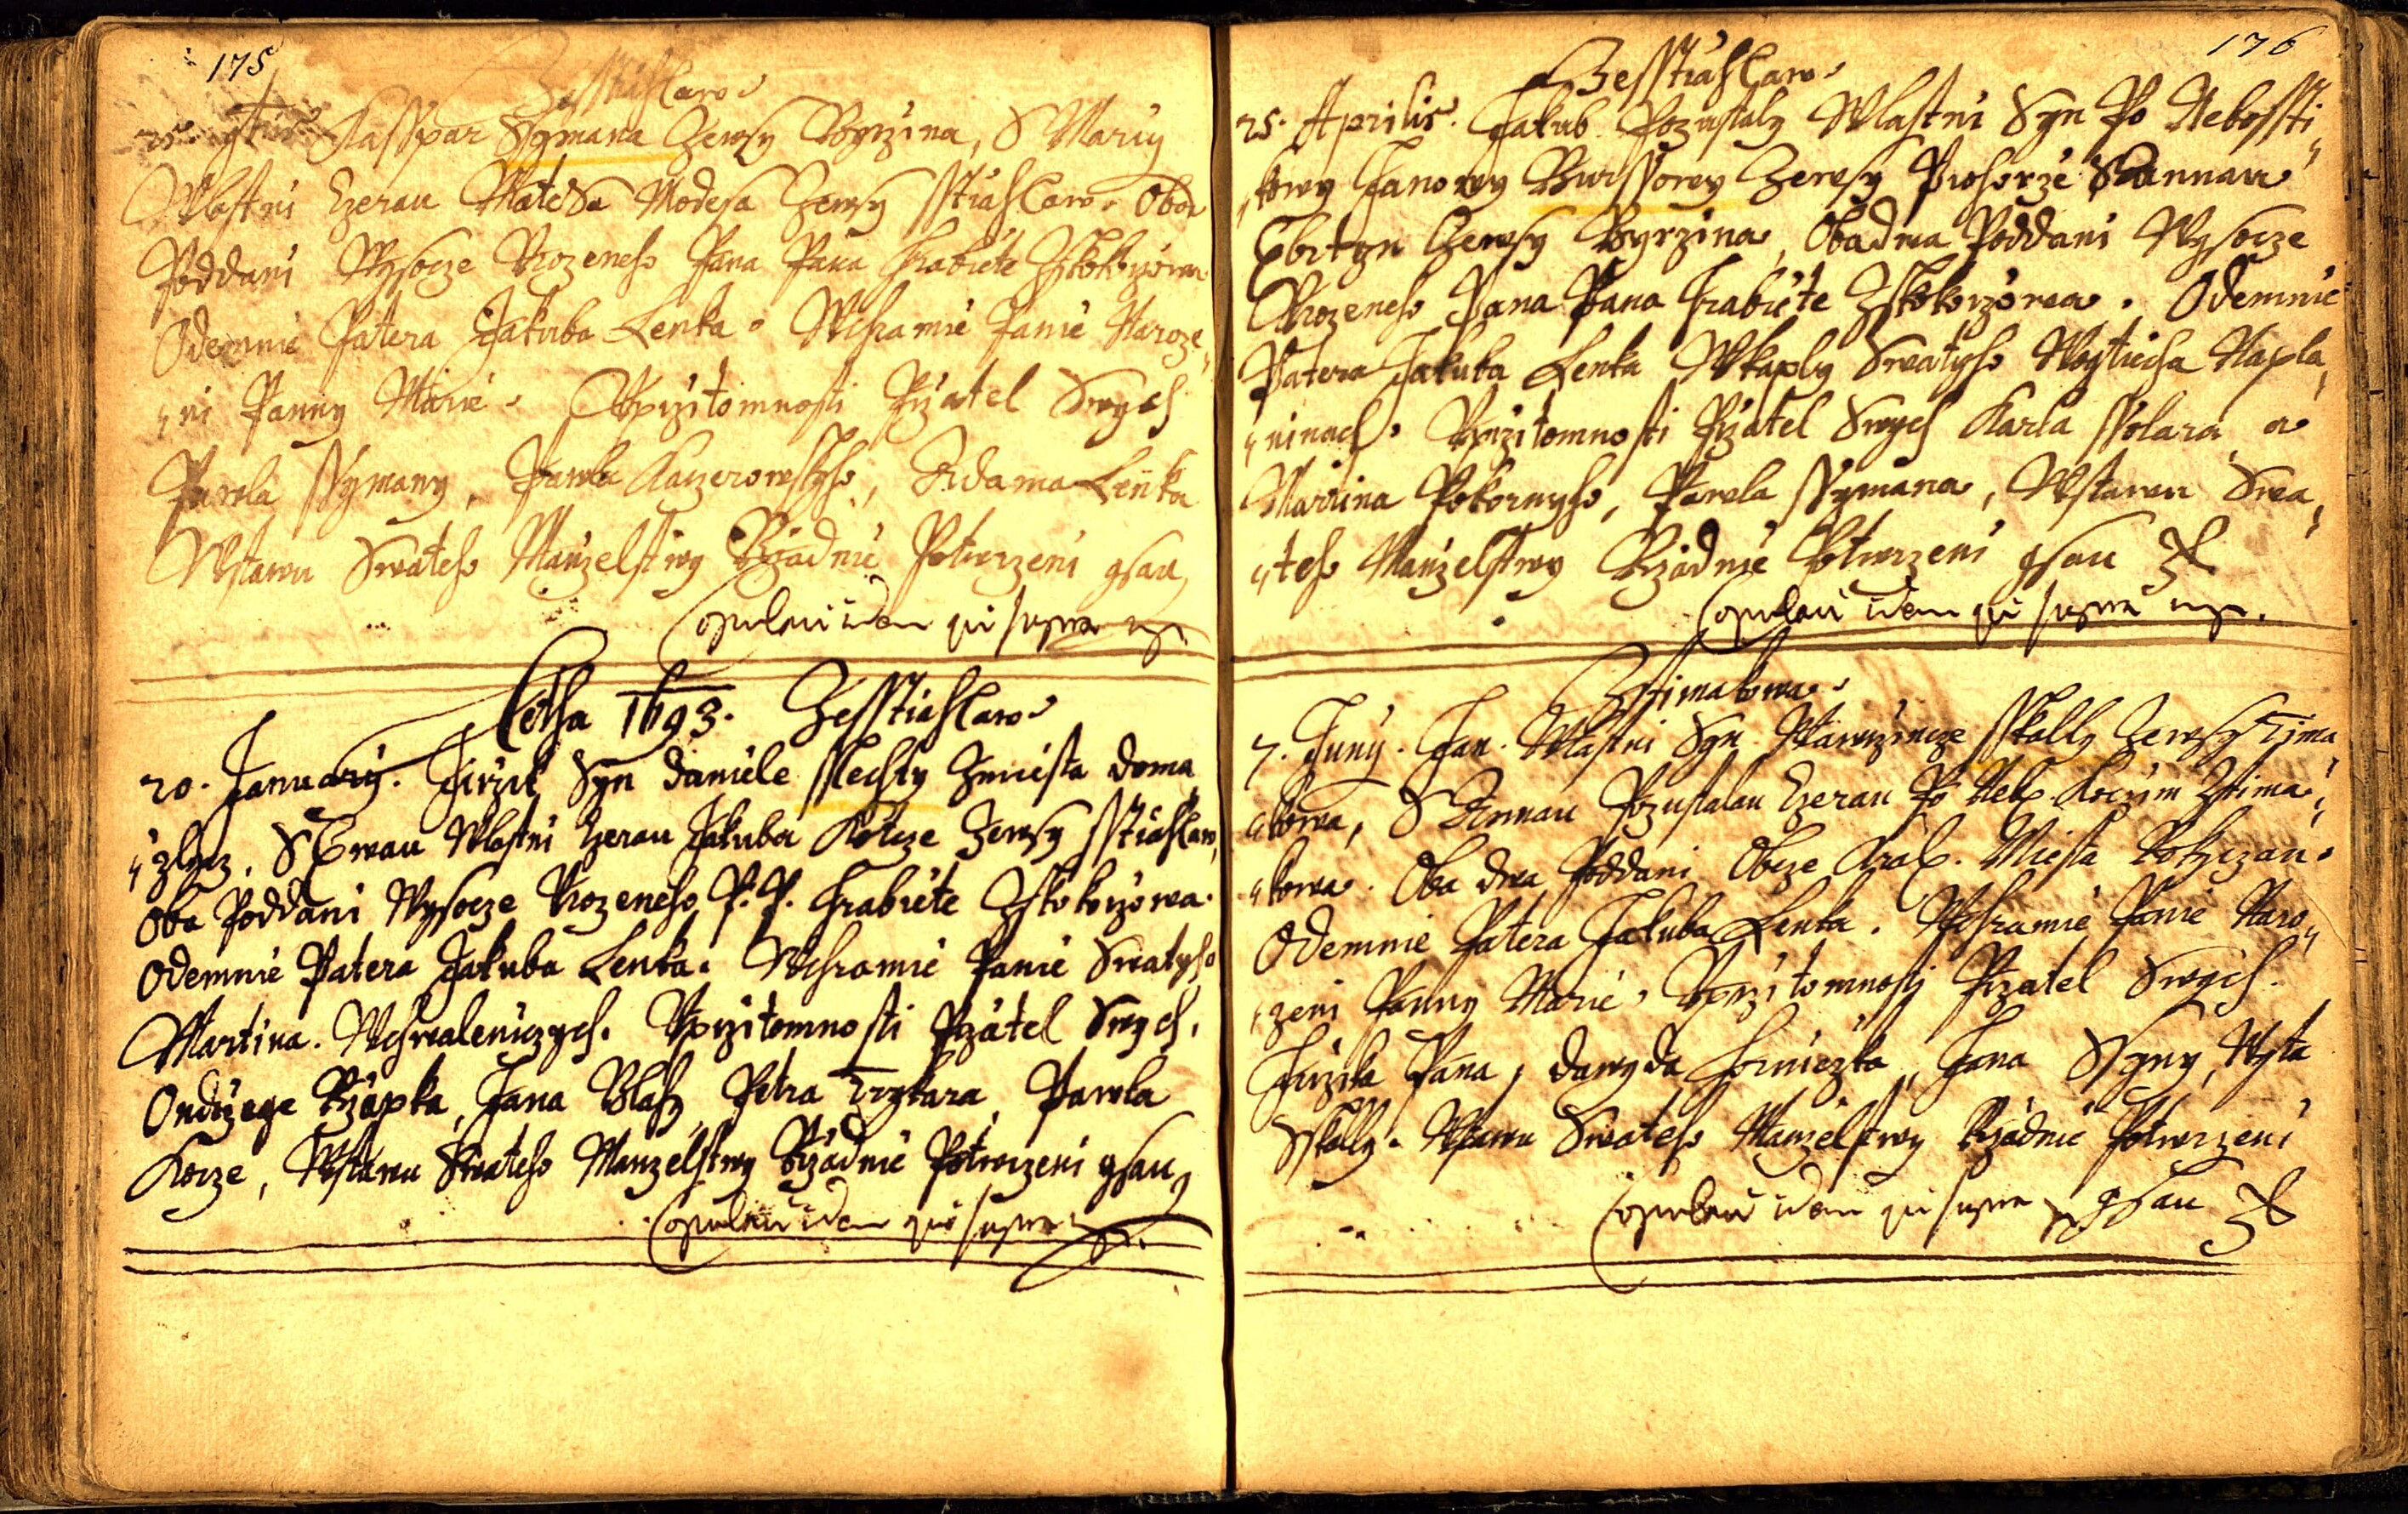 175
Zesstiahlaw
Kasspar Ssymana Zewsy Borzina, S Mariy
Wlastni Czerau Matěge Modesa Zewsy Sstiahlaw. Oba
Poddani Wysocze Urozeneho Pana Pana Hrabiete Zkokorzowa
Odemnie Patera Jakuba Lenka. Wchramie Panie Naroze„
„ni Panny Marie. Vprzitomnosti Przatel Swych
Pawla Ssymany, Pawla Kaczerowskyho, Adama Lenka
Wstawu Swateho Manzelstwy Rzadnie Potwrzeni gsau
Copulavi idem qui supra mp
Letha 1693. Zesstiahlaw
20. January. Jirzik Syn Daniele Sslechty Zmiesta Doma„
„zlycz, S Ewau Wlastni Czerau Jakuba Kotcze Zewsy Sstiahlaw,
Oba Poddani Wysocze Urozeneho P. P. Hrabiete Zkokorzowa.
Odemnie Patera Jakuba Lenka. Wchramie Panie Swatyho
Martina. Wchwaleniczych. Vprzitomnosti Przatel Swych.
Ondrzege Rzapka, Jana Blahy, Petra Trykara, Pawla
Kocze, Wstawu Swateho Manzelstwy Rzadnie Potwrzeni gsau
Copulavi idem qui supra mp.
176
Zesstiahlaw
25. Aprilis. Jakub Pozustaly Wlastni Syn Po Nebossti„
„kowy Janowy Burssowy Zewsy Prohorze S Annau
Zewsy Borzina, Obadwa Poddani Wysocze
Urozeneho Pana Pana Hrabiete Zkokorzowa. Odemnie
Patera Jakuba Lenka Wkaply Swatyho Woytiecha Napla„
„ninach. Vprzitomnosti Przatel Swych Karla Ssolara, a
Martina Pokornyho, Pawla Ssymana, Wstawu Swa„
„teho Manzelstwy Rzadnie Potwrzeni gsau
Copulavi idem qui supra mp.
Ztimakowa
7. Juny. Jan. Wlastni Syn Wawrzincze Sskally Zewsy Tima„
„kowa, S Annau Pozustalau Czerau Po Neb. Ztima„
„kowa. Oba dwa Poddani Obcze Kral. Miesta Rokyczan.
Odemnie Patera Jakuba Lenka. Wchramie Panie Naro„
„zeni Panny Marie. Vprzitomnosti Przatel Swych.
Jirzika Pana, Dawyda Horniczka, Jana Syny, Wyta
Sskally. Wstawu Swateho Manzelstwy Rzadnie Potwrzeni
Copulavi idem qui supra mp gsau